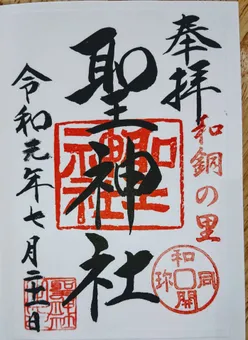 奉拝
和銅の里
聖神社
令和元年七月二十一日
和同開珎